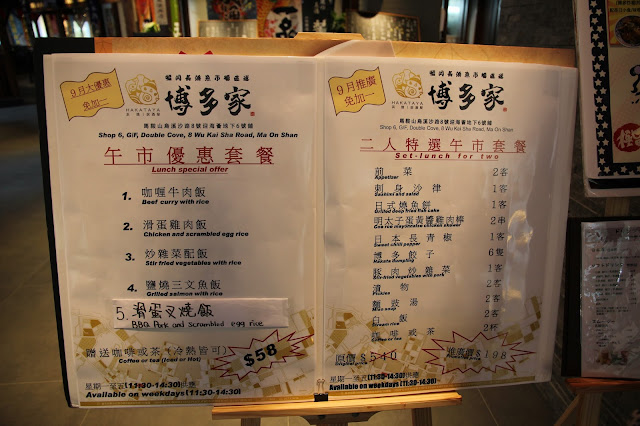 9月大優惠
免加一
HAKATAYA
博多家
Shop 6, G/F, Double Cove, 8 Wu Kai Sha Road, Ma On Shan
午市優惠套餐
Lunch special offer
1. 咖喱牛肉飯
Beef curry with rice
2. 滑蛋雞肉飯
Chicken and scrambled egg rice
3. 炒雜菜配飯
Stir fried vegetables with rice
4. 鹽燒三文魚飯
Grilled salmon with rice
5. 滑蛋叉燒飯
BBQ Pork and Scrambled egg rice
贈送咖啡或茶(冷熱皆可)
Coffee or tea (Iced or Hot)
$58
(11:30-14:30)
Available on weekdays (11:30-14:30)
9月推廣
免加一
HAKATAYA
博多家
馬鞍山烏溪沙路8號迎海薈地下6號舖
Shop 6, G/F, Double Cove, 8 Wu Kai Sha Road, Ma On Shan
二人特選午市套餐
Set-lunch for two
前菜 2客
Appetizer
刺身沙律 1客
Sashimi and salad
日式燒魚餅 1客
Grilled deep fried fish cake
明太子蛋黃醬雞肉棒 2串
日本長青椒 1客
Sweet chili pepper
博多餃子 6隻
Hakata Dumpling
豚肉炒雜菜 1客
Stir-fried vegetables with pork
漬物 2客
Pickles
麵豉湯 2客
Miso soup
白飯 2客
Steam rice
咖啡或茶 2杯
Coffee or tea
原價$540
$198
(11:30-14:30)
Available on weekdays (11:30-14:30)